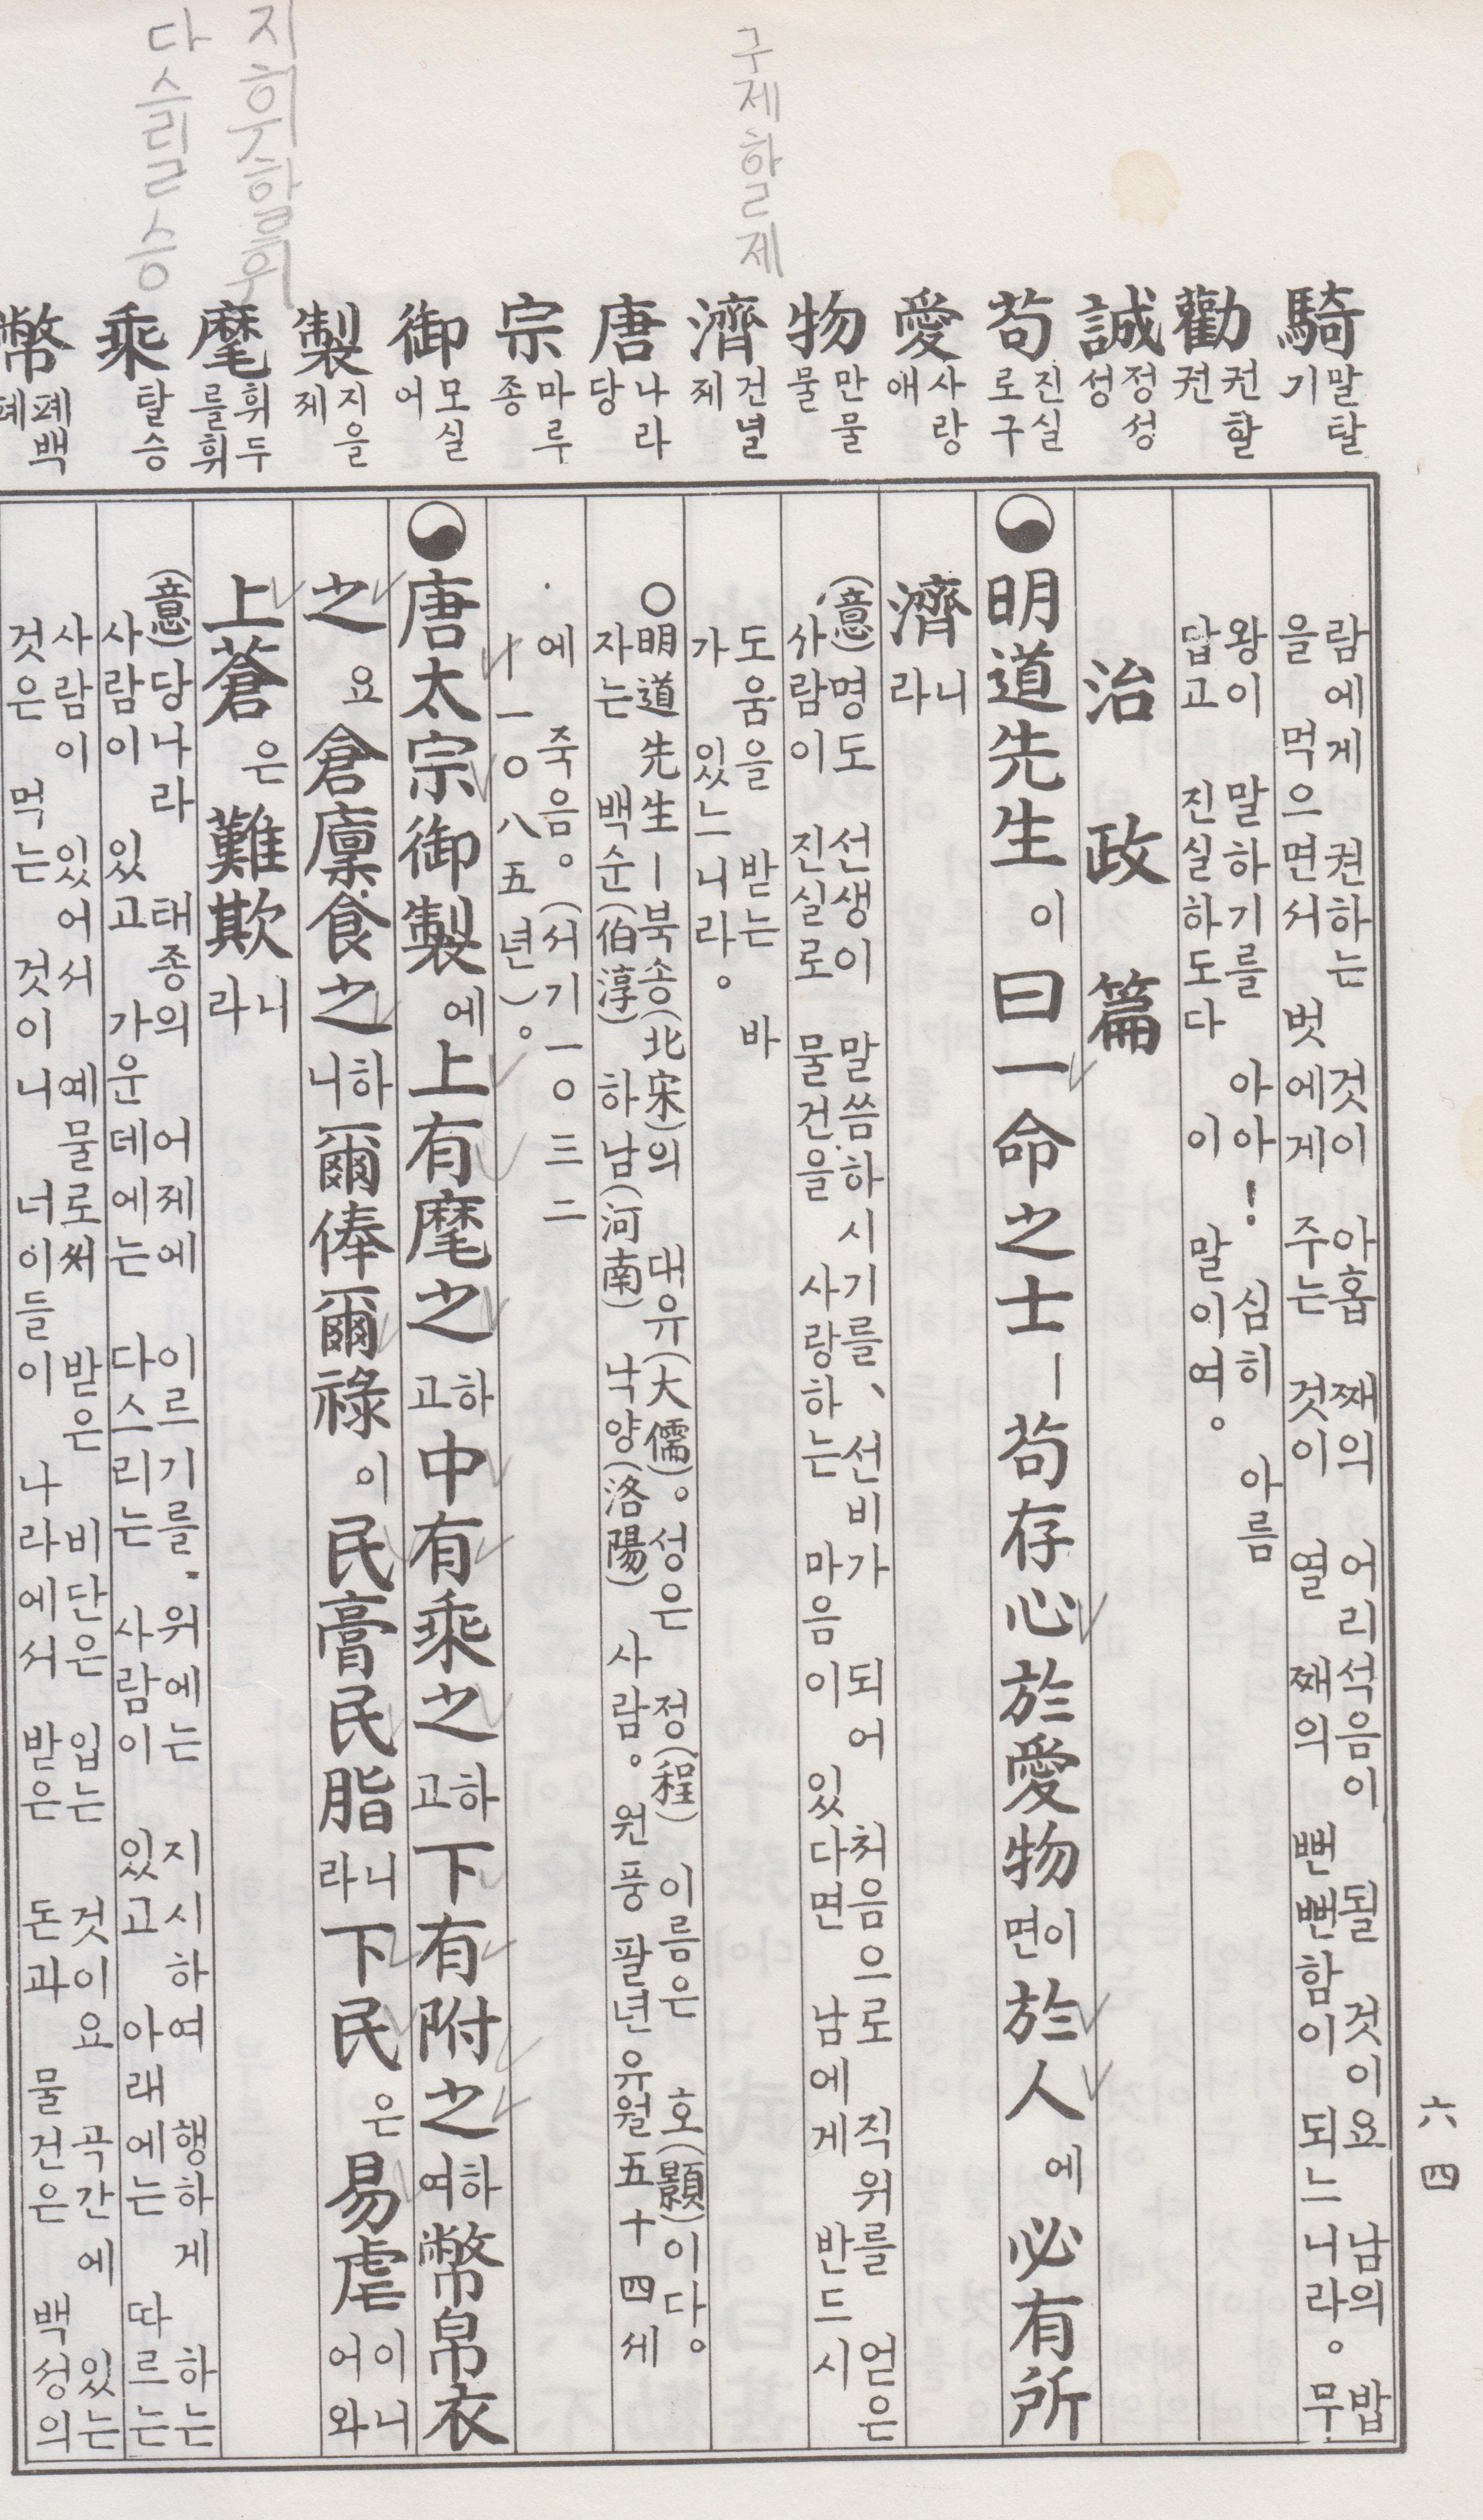 구제할 제
지휘할 휘
다스릴 승
騎 말탈 기
勸 권할 권
誠 정성 성
苟 진실로 구
愛 사랑 애
物 만물 물
濟 건널 제
唐 나라 당
宗 마루 종
御 모실 어
製 지을 제
麾 휘두를 휘
乘 탈 승
幣 폐백 폐
람에게 권하는 것이 아홉 째의 어리석음이 될 것이요 남의 밥
을 먹으면서 벗에게 주는 것이 열 째의 뻔뻔함이 되느니라。 무
왕이 말하기를 아아! 심히 아름
답고 진실하도다 이 말이여。
治政篇
明道先生이 曰一命之士ㅣ苟存心於愛物이면於人에必有所
濟니라
(意)명도 선생이 말씀하시기를、선비가 되어 처음으로 직위를 얻은
사람이 진실로 물건을 사랑하는 마음이 있다면 남에게 반드시
도움을 받는 바
가 있느니라。
〇明道先生ㅣ북송(北宋)의 대유(大儒)。성은 정(程) 이름은 호(顥)이다。
자는 백순(伯淳) 하남(河南) 낙양(洛陽) 사람。원풍 팔년 유월 五十四세
에 죽음。(서기一〇三二
ㅣ一〇八五년)。
唐太宗御製에上有麾之하고中有乘之하고下有附之하여幣帛衣
之요倉廩食之하니爾俸爾祿이民膏民脂니라下民은易虐이니어와
上蒼은難欺니라
(意)당나라 태종의 어제에 이르기를. 위에는 지시하여 행하게 하는
사람이 있고 가운데에는 다스리는 사람이 있고 아래에는 따르는
사람이 있어서 예물로써 받은 비단은 입는 것이요 곡간에 있는
것은 먹는 것이니 너이들이 나라에서 받은 돈과 물건은 백성의
六四